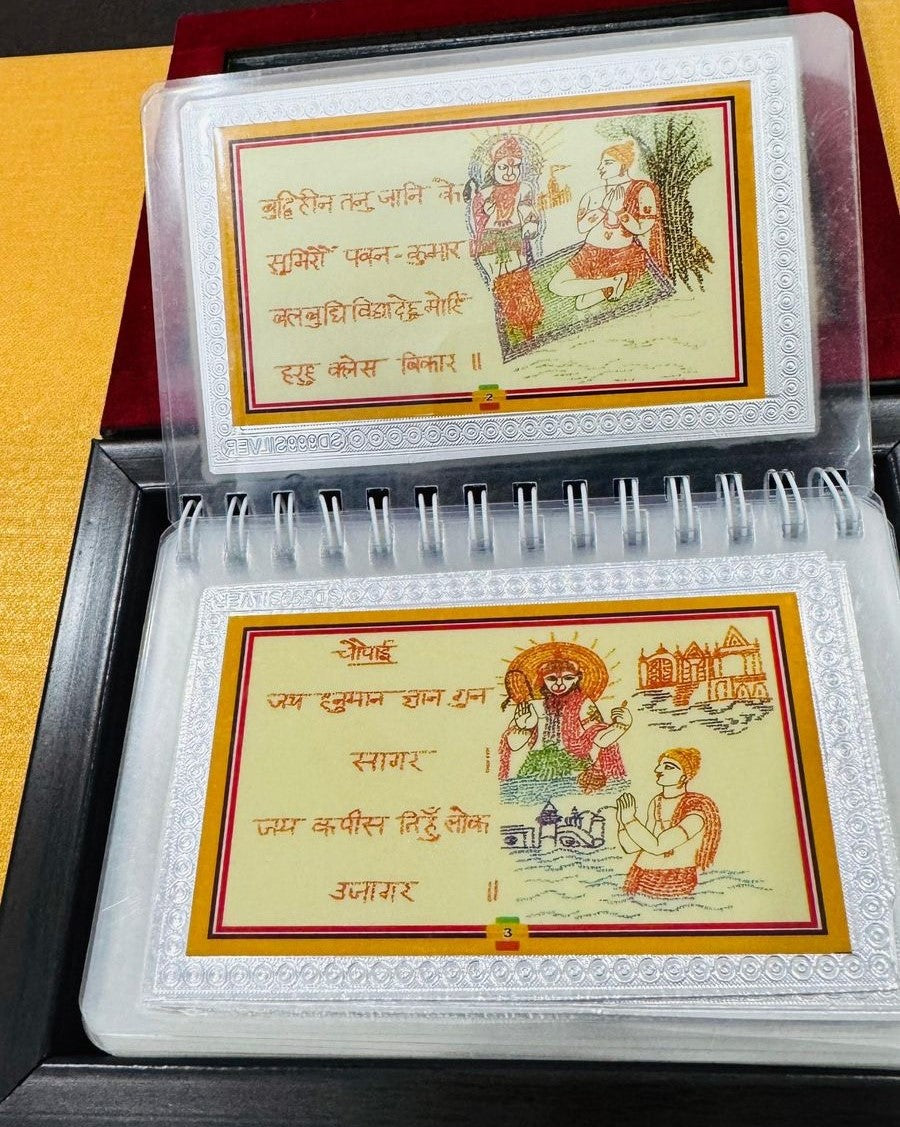 बुद्धिहीन तनु जानि के
सुमिरौं पवन - कुमार
बल बुधि विद्या देहु मोहिं
हरहु क्लेस बिकार ॥
2
SD999SILVER
SD999SILVER
चौपाई
जय हनुमान ज्ञान गुन
सागर ।
जय कपीस तिहुँ लोक
उजागर ॥
3